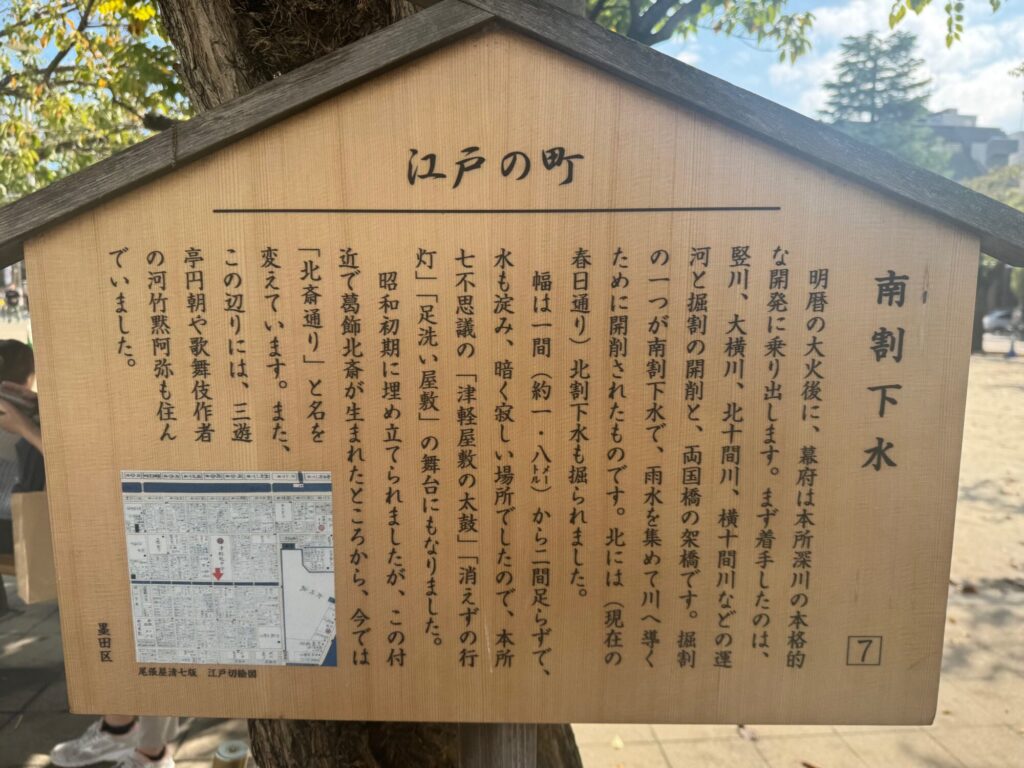 江戸の町
南割下水
7
明暦の大火後に、幕府は本所深川の本格的
な開発に乗り出します。まず着手したのは、
竪川、大横川、北十間川、横十間川などの運
河と掘割の開削と、両国橋の架橋です。掘割
の一つが南割下水で、雨水を集めて川へ導く
ために開削されたものです。北には（現在の
春日通り）北割下水も掘られました。
幅は一間（約一・八メートル）から二間足らずで、
水も淀み、暗く寂しい場所でしたので、本所
七不思議の「津軽屋敷の太鼓」「消えずの行
灯」「足洗い屋敷」の舞台にもなりました。
昭和初期に埋め立てられましたが、この付
近で葛飾北斎が生まれたところから、今では
「北斎通り」と名を
変えています。また、
この辺りには、三遊
亭円朝や歌舞伎作者
の河竹黙阿弥も住ん
でいました。
尾張屋清七版 江戸切絵図
墨田区